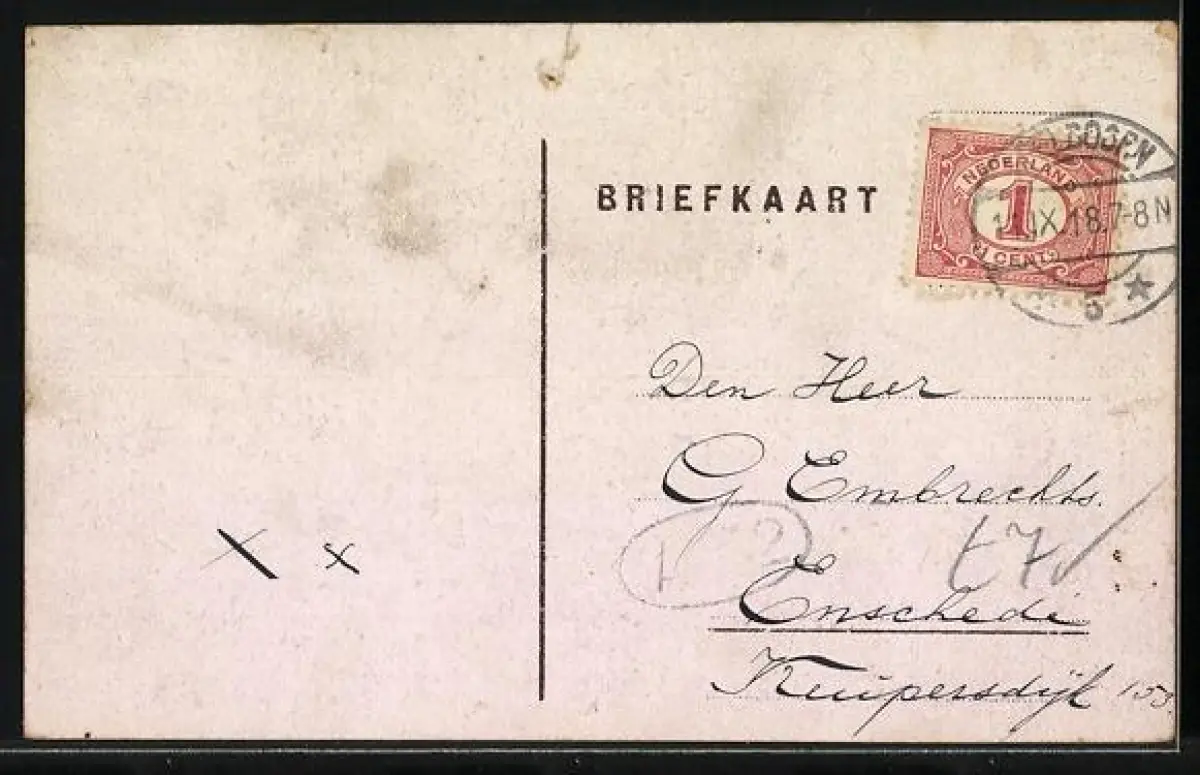 BRIEFKAART
NEDERLAND
1
CENT
IX.18.7-8N
5
Den Heer
G Embrechts.
Enschedé
Kuipersdijk
t7
x x